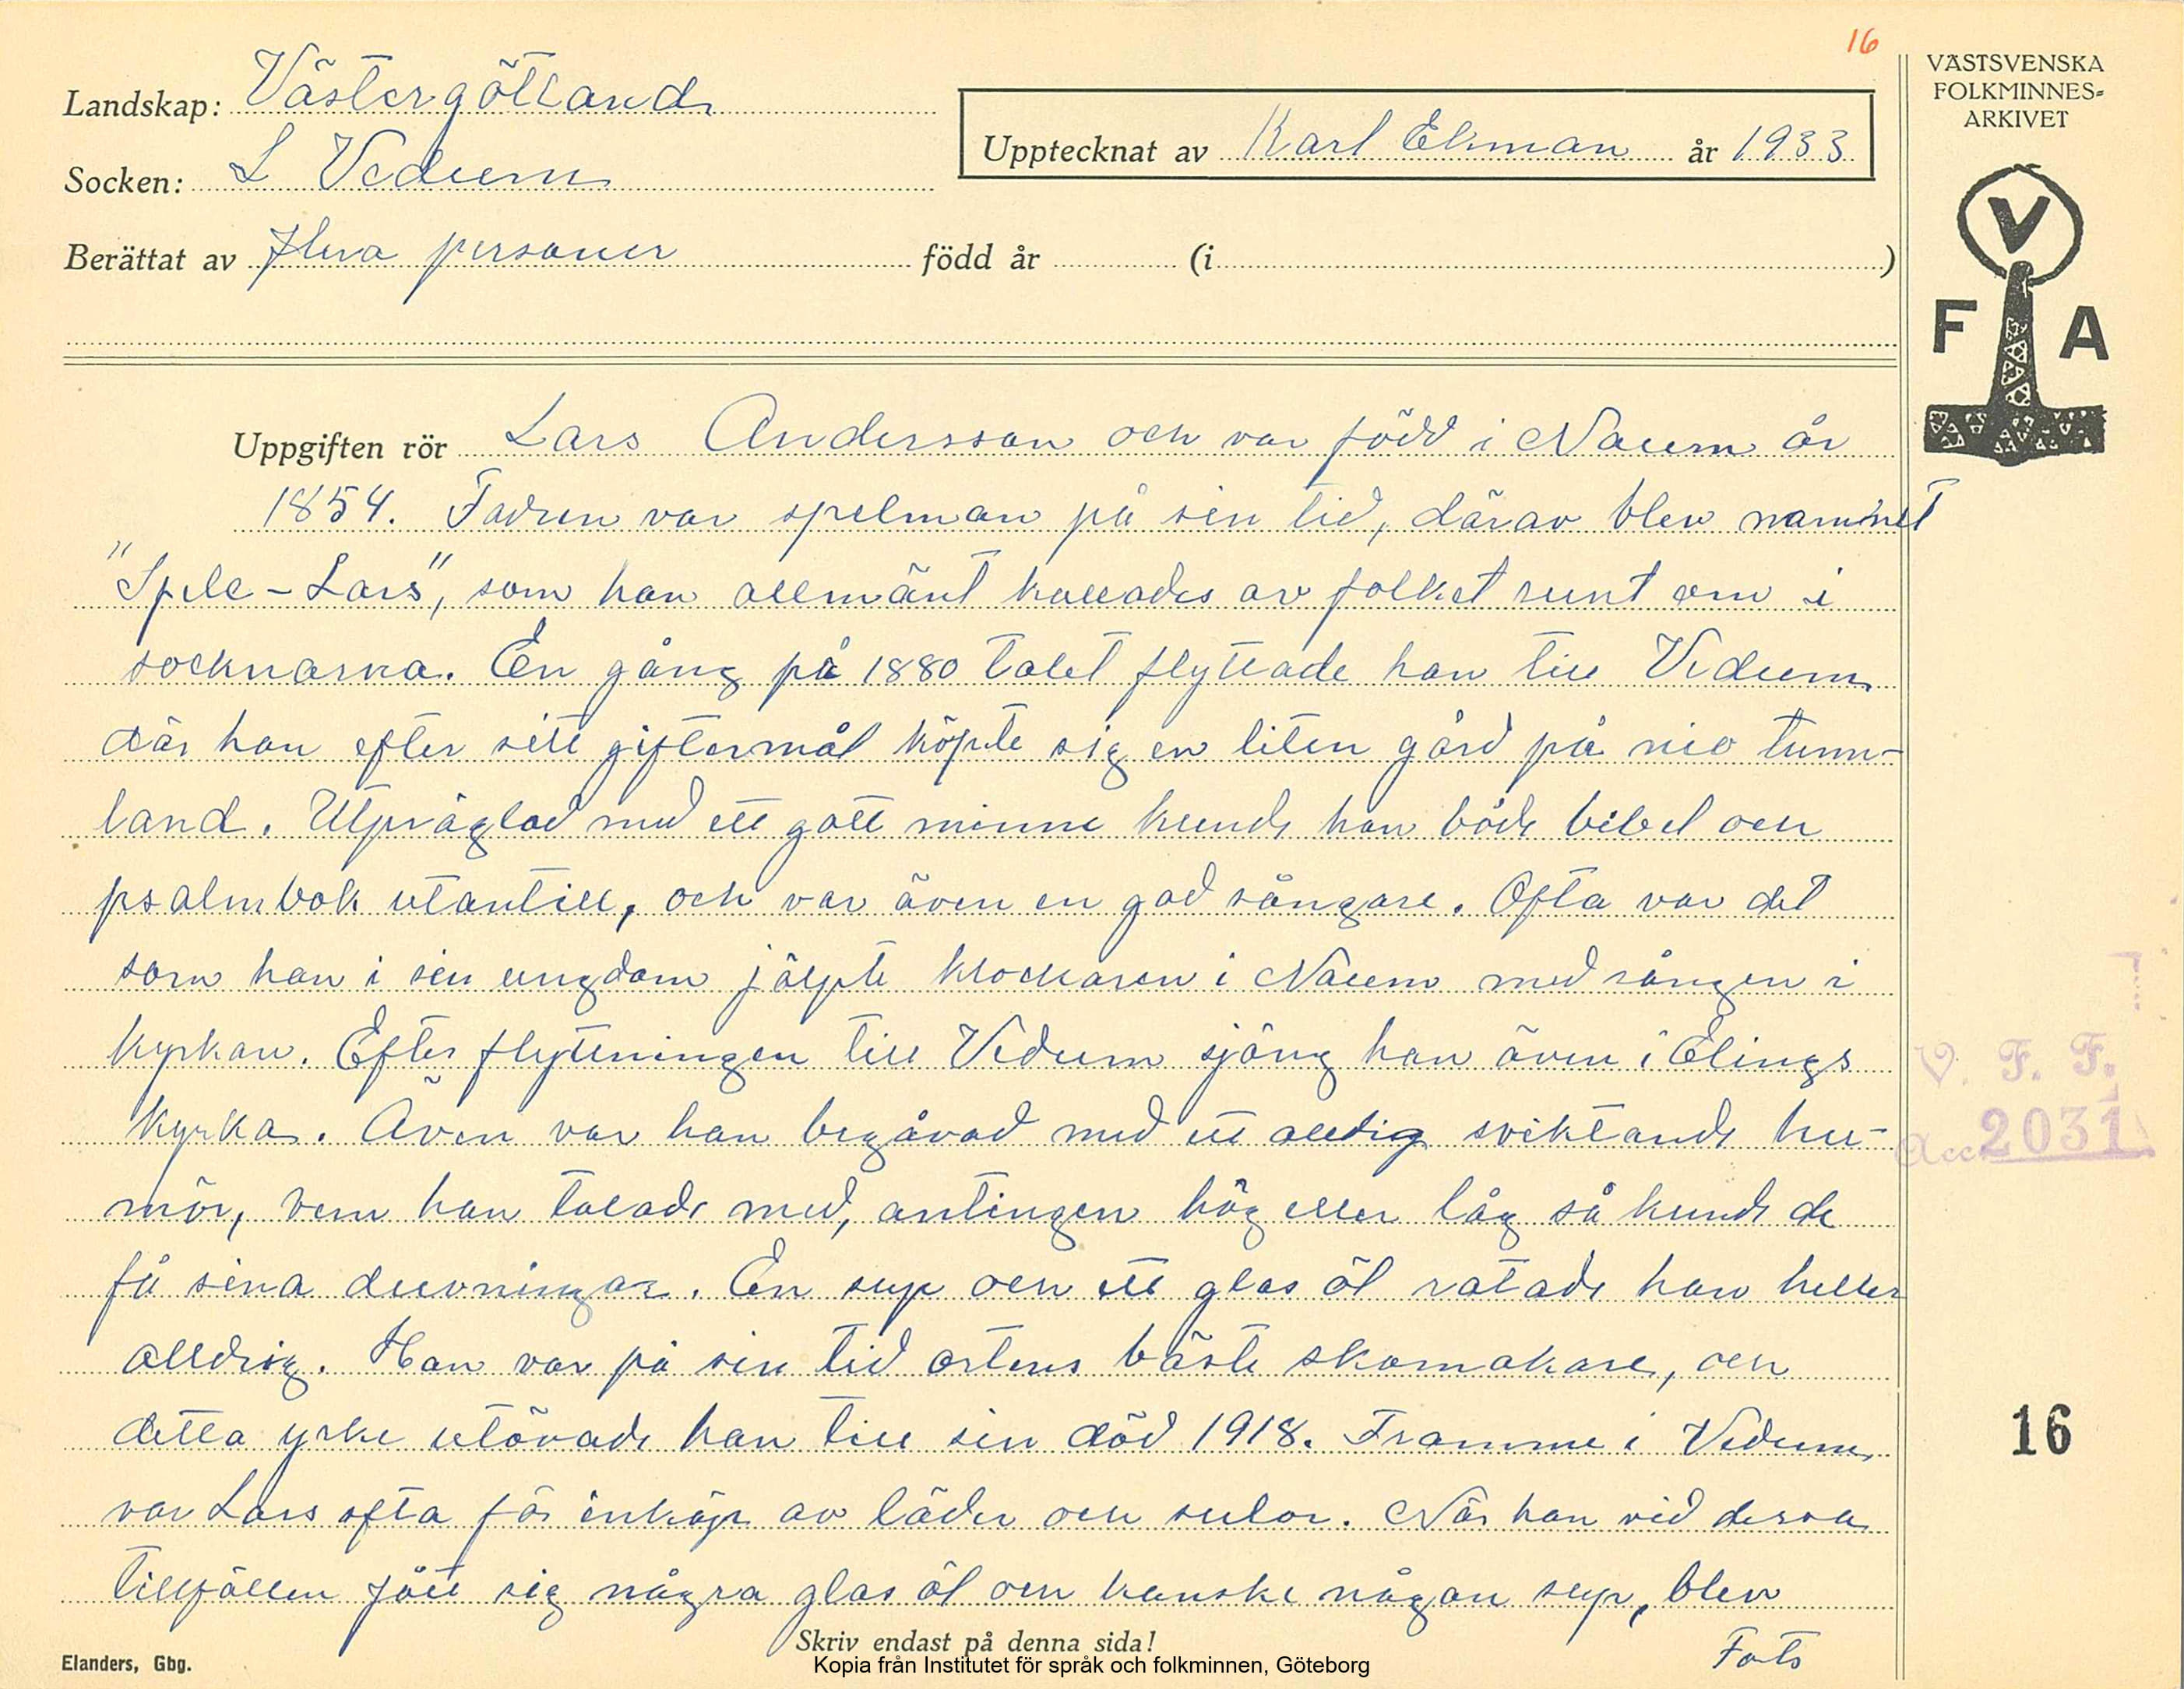 16
VÄSTSVENSKA
FOLKMINNES=
ARKIVET
Landskap: Västergötland
Upptecknat av Karl Ekman år 1933
Socken: L Vedum
Berättat av flera personer född år (i )
V
F A
Uppgiften rör Lars Andersson och var född i Naum år
1854. Fadren var spelman på sin tid, därav blev namnet
"Spele-Lars", som han allmänt kallades av folket runt om i
socknarna. En gång på 1880 talet flyttade han till Vedum
där han efter sitt giftermål köpte sig en liten gård på nio tunn-
land. Utpräglad med ett gott minne kunde han både bibel och
psalmbok utantill, och var även en god sångare. Ofta var det
som han i sin ungdom jälpte klockaren i Naum med sången i
kyrkan. Efter flyttningen till Vedum sjöng han även i Elings
kyrka. Även var han begåvad med ett alldig sviktande hu-
mör, vem han talade med, antingen hög eller låg så kunde de
få sina duvningar. En sup och ett glas öl ratade han heller
alldrig. Han var på sin tid ortens bäste skomakare, och
detta yrke utövade han till sin död 1918. Framme i Vedum
var Lars ofta för inköp av läder och sulor. När han vid dessa
tillfällen fått sig några glas öl och kanske någon sup, blev
Forts
V. F. F.
Acc 2031
16
Skriv endast på denna sida!
Elanders, Gbg.
Kopia från Institutet för språk och folkminnen, Göteborg